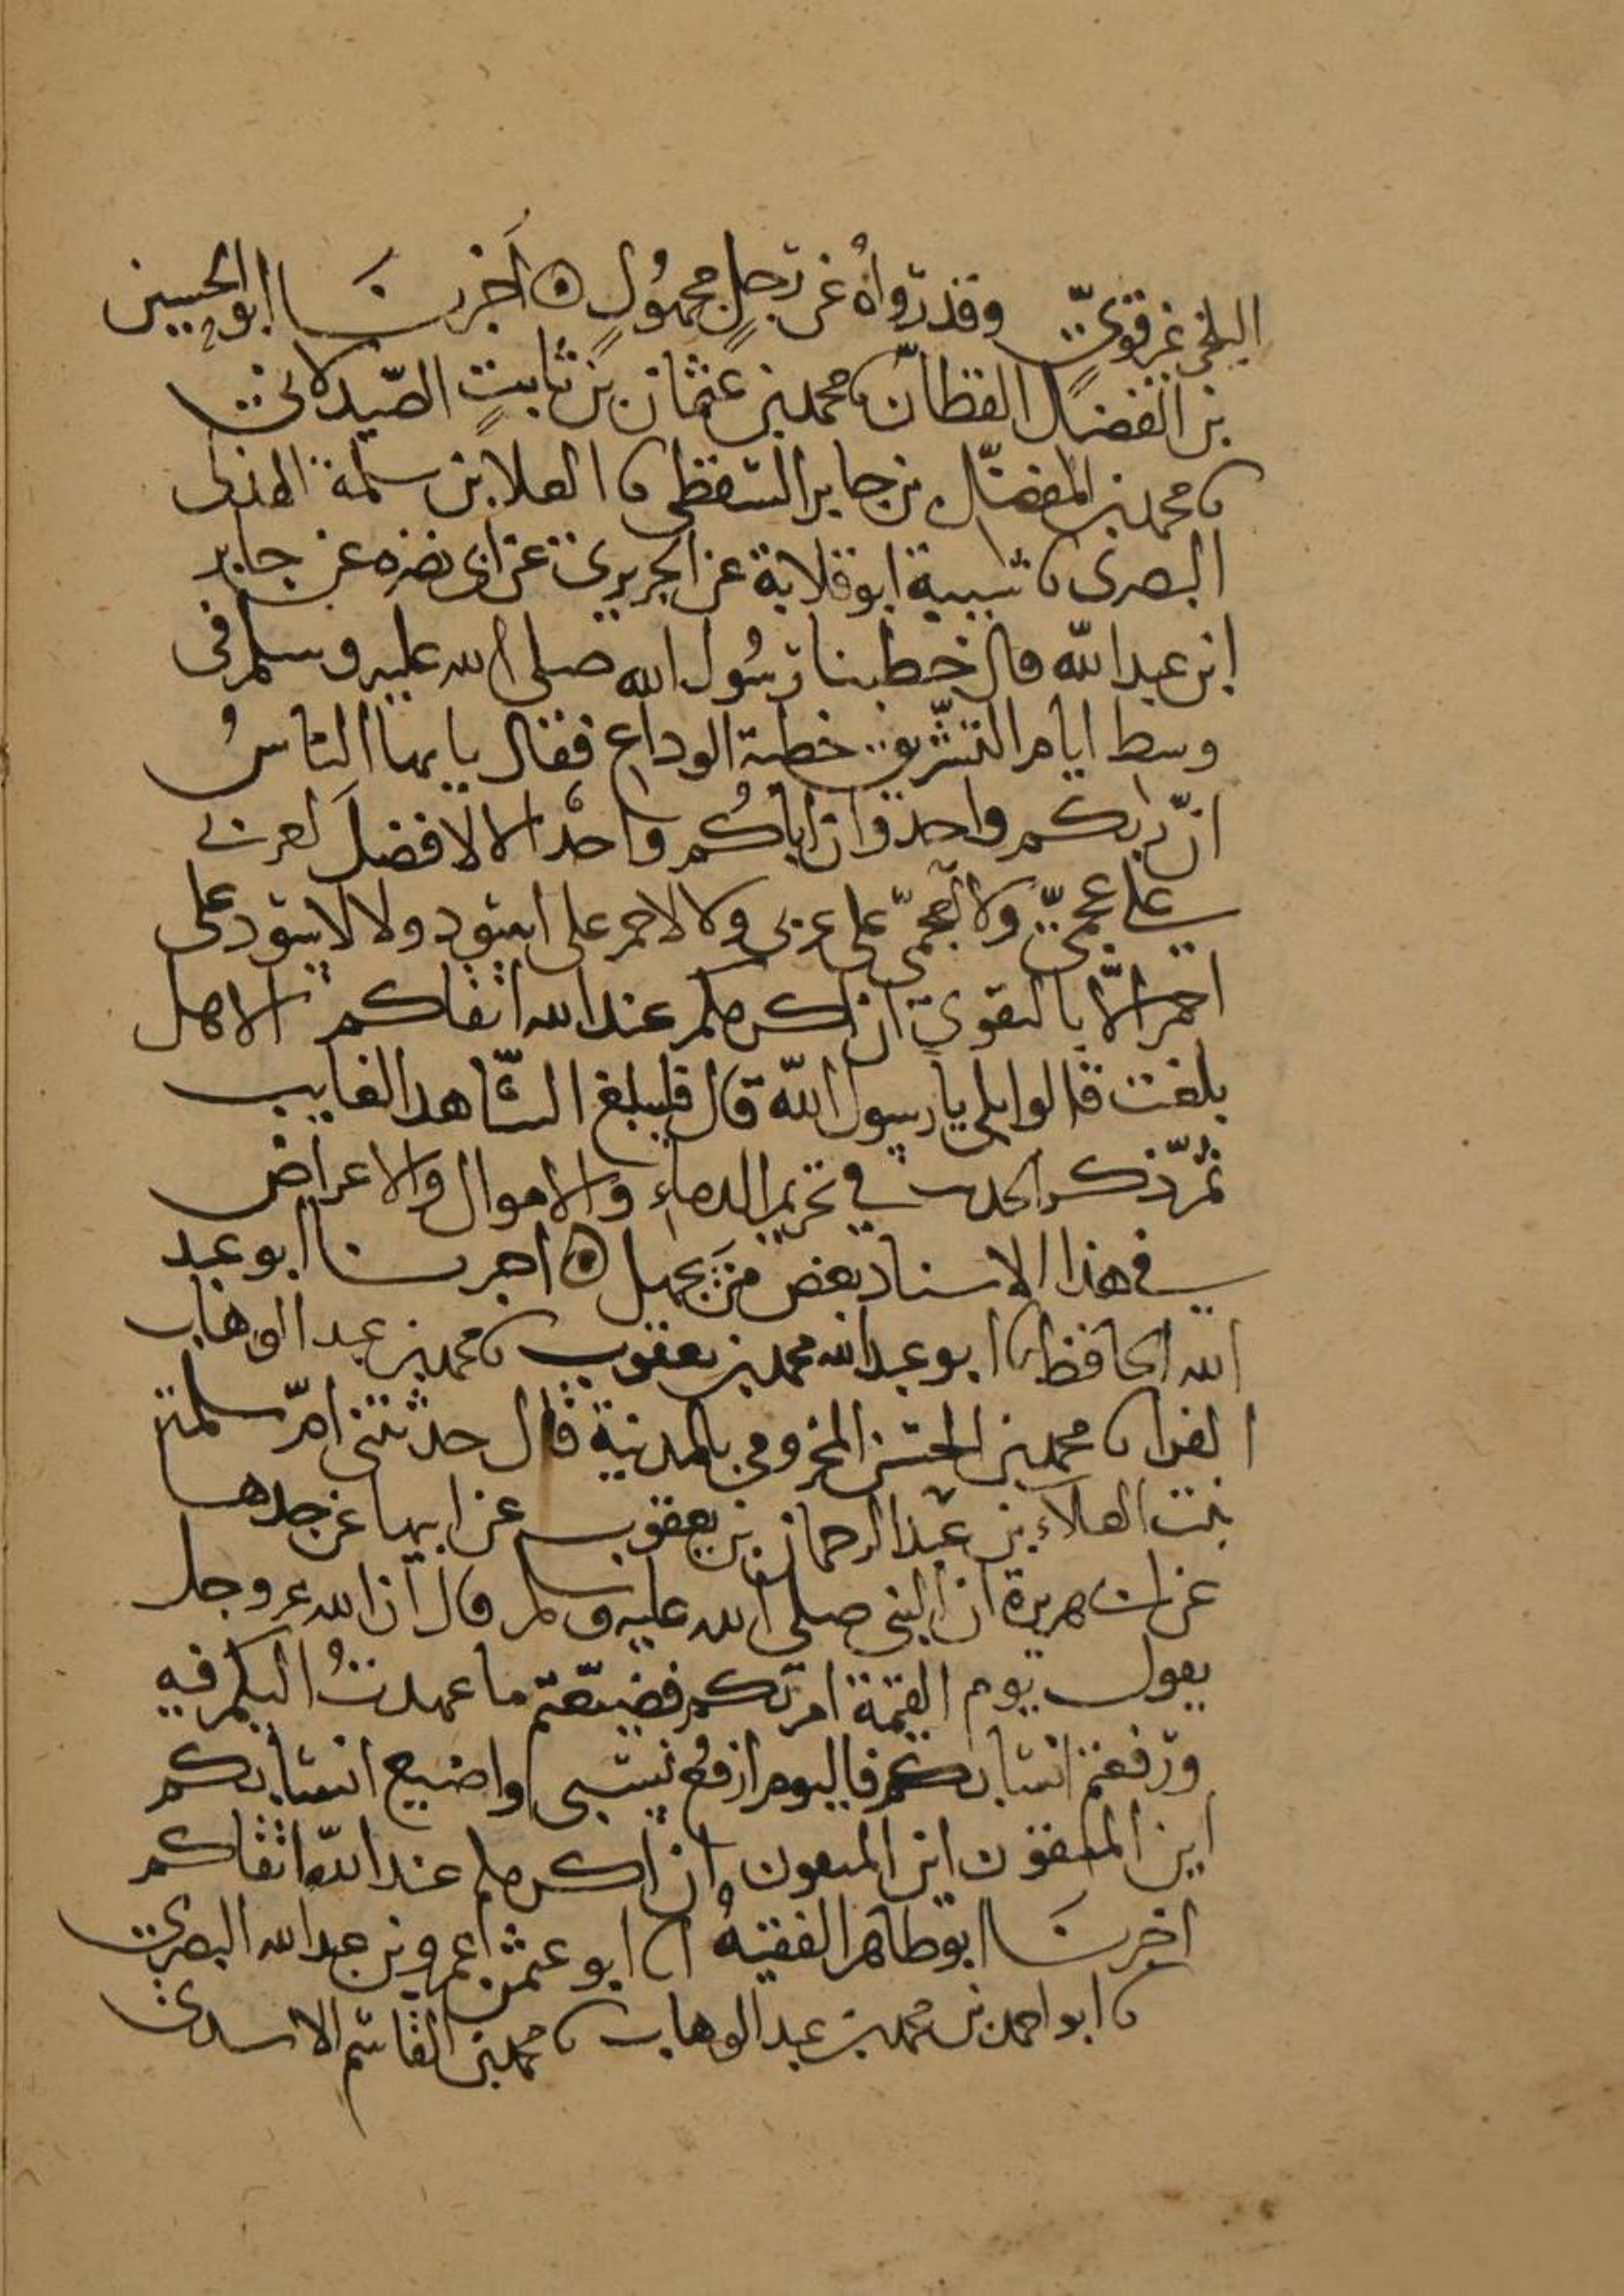 البلخي غير قويّ وقد رواهُ عن رجلٍ مجهُولٍ ۞ أخبرنَا ابو الحسين
بن الفضل القطان نا محمد بن عثمان بن ثابتٍ الصّيدلاني
نا محمد بن المفضّل بن جابر السقطي نا العلا بن سلمة الهذلي
البصرى نا شيبة ابو قلابة عن الجريري عن ابى نضره عن جابر
ابن عبد الله قال خطبنا رسُول الله صلى الله عليه وسلم فى
وسط ايام التشريق خطبة الوداع فقال يا يها الناسُ
انّ ربكم واحد وان اباكُم واحدٌ الا لا فضلَ لعربي
على عجميّ ولا لعجميّ على عربي ولا لاحمر على اسود ولا لاسود على
احمر الّا بالتقوى ان اكرمكم عند الله اتقاكم الا هل
بلغت قالوا بلى يا رسول الله قال فليبلغ الشّاهد الغايب
ثمّ ذكر الحديث في تحريم الدماءِ والاموال والاعراض
في هذا الاسناد بعض من يجهل ۞ اخبرنا ابو عبد
الله الحافظ نا ابو عبد الله محمد بن يعقوب نا محمد بن عبد الوهاب
الفرا نا محمد بن الحسن المخزومي بالمدينة قال حدثتني امّ سلمة
بنت العلاء بن عبد الرحمان بن يعقوب عن ابيها عن جدها
عن ابي هريرة ان النبي صلى الله عليه وسلم قال ان الله عز وجل
يقول يوم القيمة امرتكم فضيعتم ما عهدتُ اليكم فيه
ورفعتم انسابكم فاليوم ارفع نسبي واضيع انسابكم
اين المتقون اين المتقون ان اكرمكم عند الله اتقاكم
اخبرنَا ابو طاهر الفقيهُ انا ابو عثمن عمرو بن عبد الله البصرى
نا ابو احمد بن محمد بن عبد الوهاب نا محمد بن القاسم الاسدى